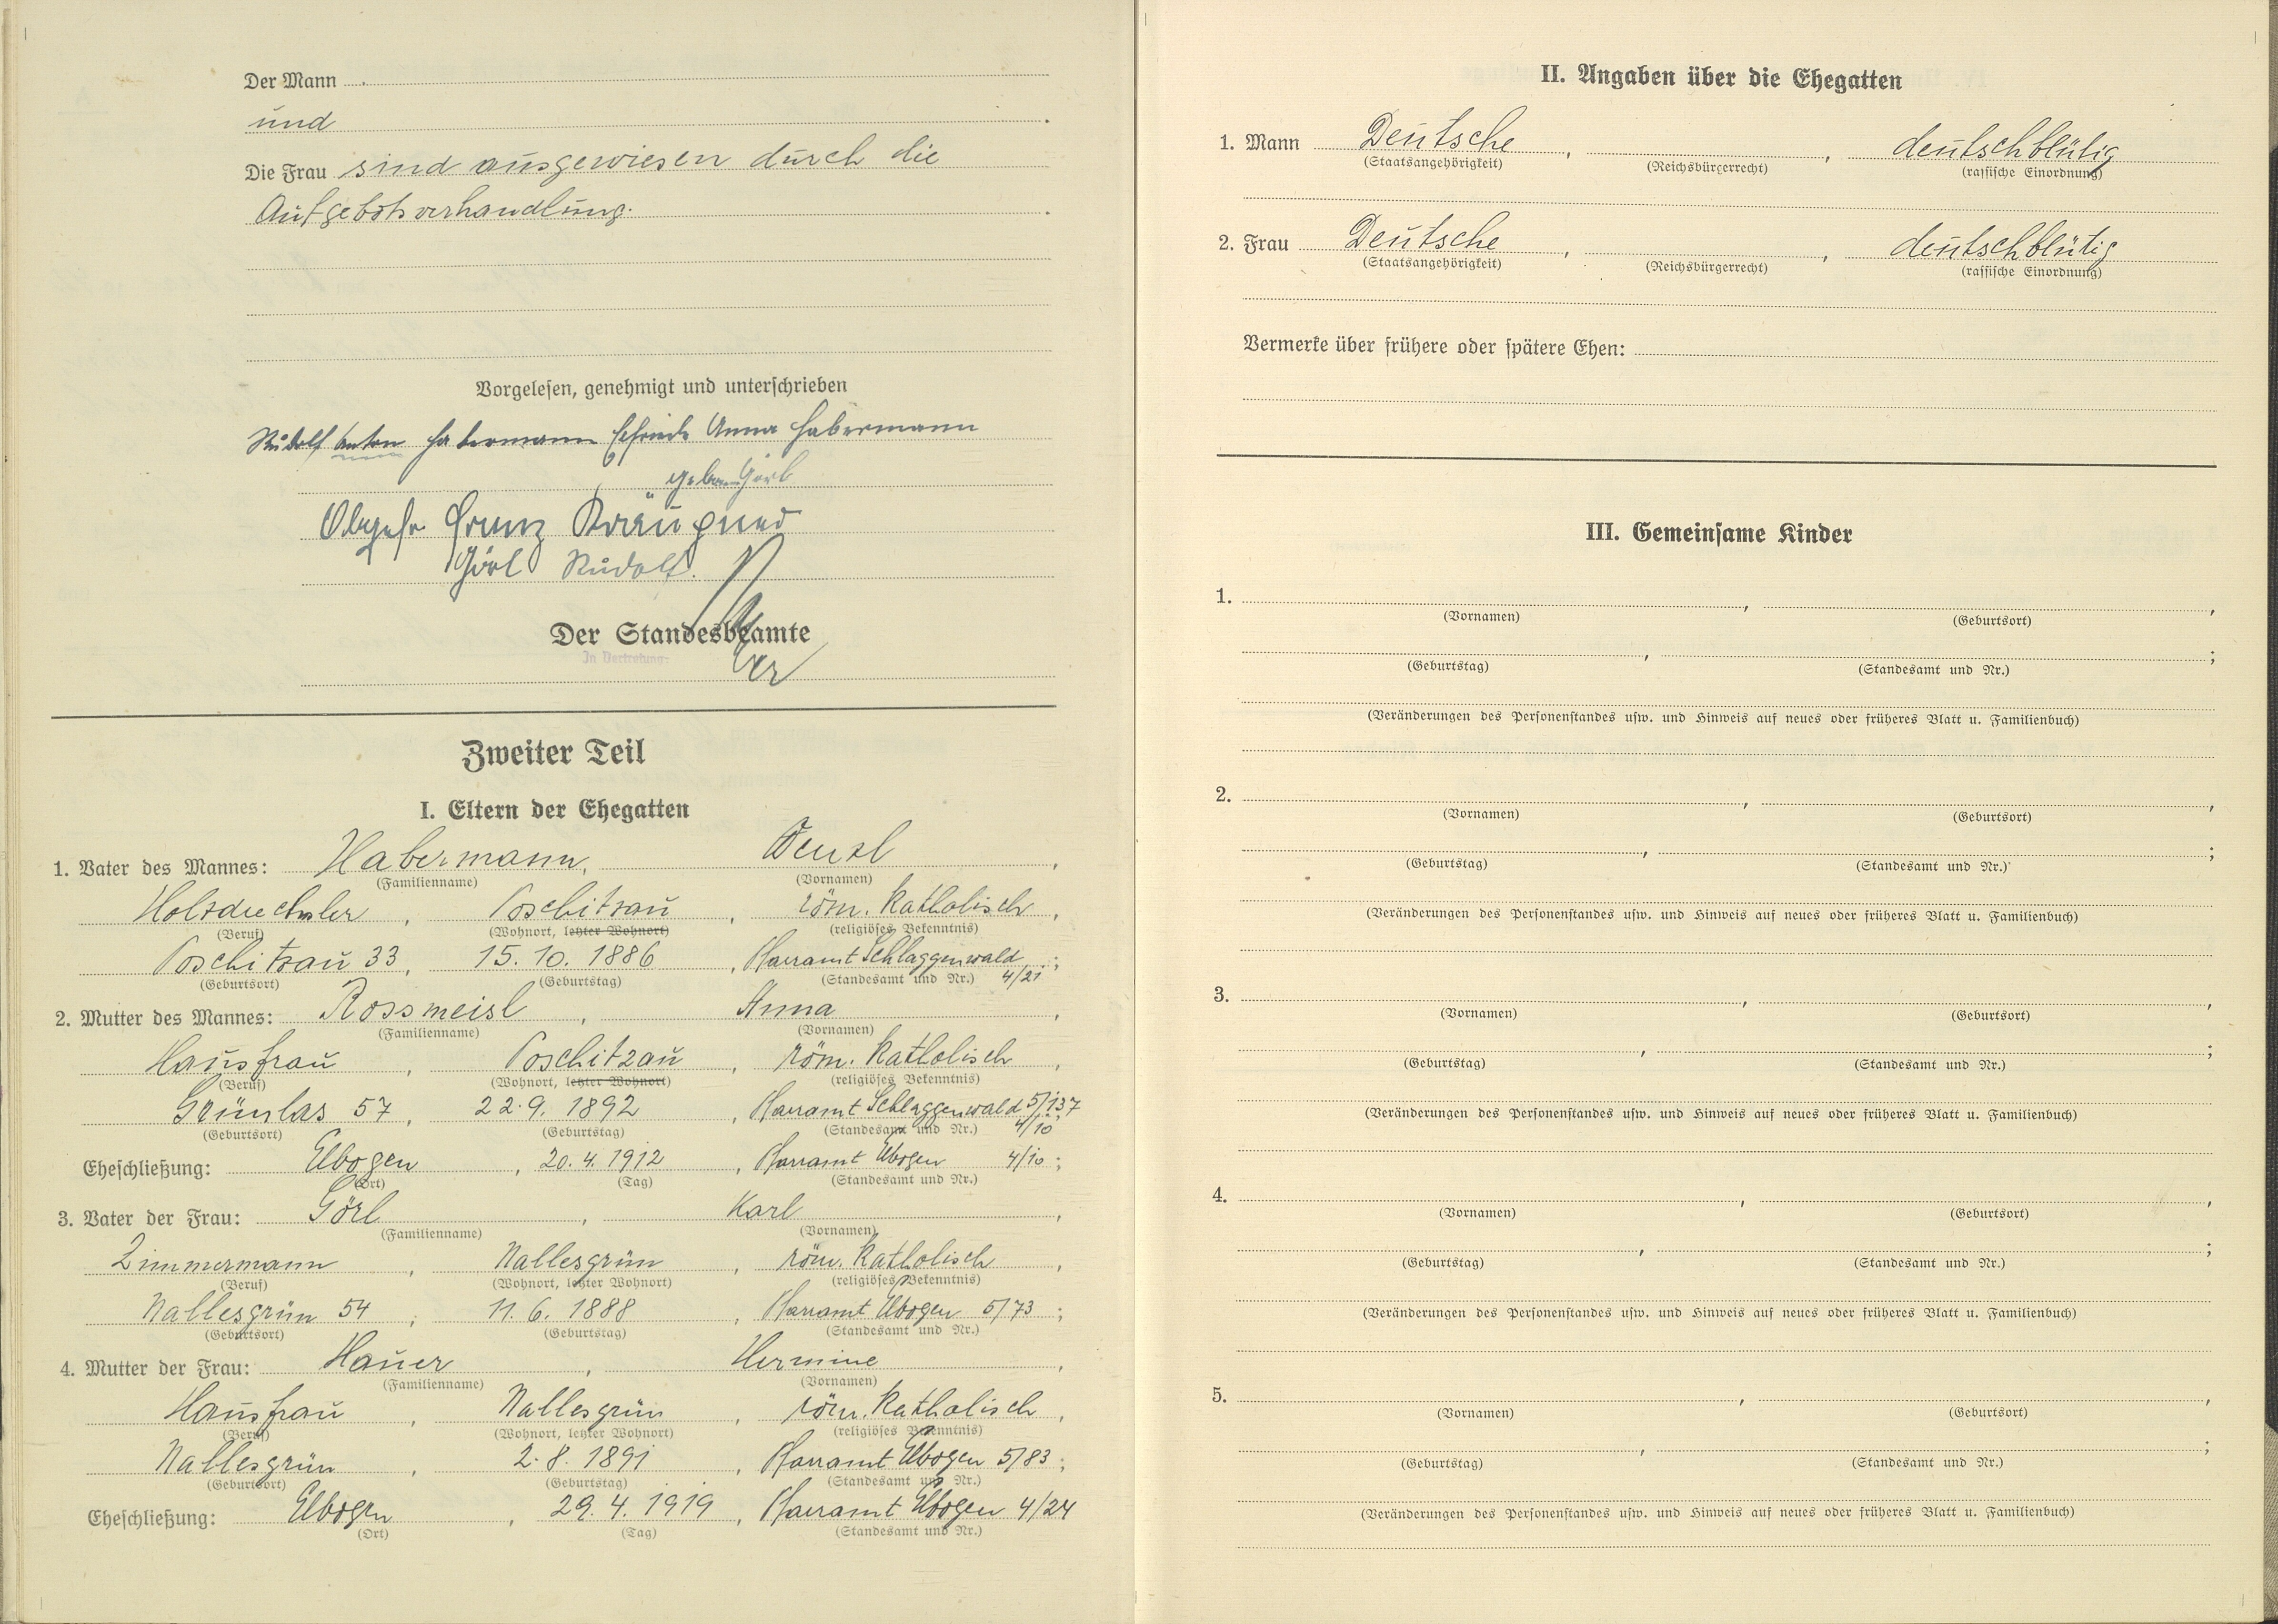 Der Mann
und
Die Frau sind ausgewiesen durch die
Aufgebotsverhandlung.
Vorgelesen, genehmigt und unterschrieben
Rudolf Anton Habermann Elfriede Anna Habermann
geborene Görl
Obgefr. Franz Bräugner
Görl Rudolf.
Der Standesbeamte
In Vertretung:
Zweiter Teil
I. Eltern der Ehegatten
1. Vater des Mannes: Habermann, Wenzl,
(Familienname) (Vornamen)
Holzdrechsler, Poschitzau, röm. katholisch,
(Beruf) (Wohnort, letzter Wohnort) (religiöses Bekenntnis)
Poschitzau 33, 15. 10. 1886, Pfarramt Schlaggenwald 4/21;
(Geburtsort) (Geburtstag) (Standesamt und Nr.)
2. Mutter des Mannes: Rossmeisl, Anna,
(Familienname) (Vornamen)
Hausfrau, Poschitzau, röm. katholisch,
(Beruf) (Wohnort, letzter Wohnort) (religiöses Bekenntnis)
Grünlas 57, 22. 9. 1892, Pfarramt Schlaggenwald 5/137;
(Geburtsort) (Geburtstag) (Standesamt und Nr.) 4/10
Eheschließung: Elbogen, 20. 4. 1912, Pfarramt Elbogen 4/10;
(Ort) (Tag) (Standesamt und Nr.)
3. Vater der Frau: Görl, Karl,
(Familienname) (Vornamen)
Zimmermann, Nallesgrün, röm. katholisch,
(Beruf) (Wohnort, letzter Wohnort) (religiöses Bekenntnis)
Nallesgrün 54, 11. 6. 1888, Pfarramt Elbogen 5/73;
(Geburtsort) (Geburtstag) (Standesamt und Nr.)
4. Mutter der Frau: Hauer, Hermine,
(Familienname) (Vornamen)
Hausfrau, Nallesgrün, röm. katholisch,
(Beruf) (Wohnort, letzter Wohnort) (religiöses Bekenntnis)
Nallesgrün, 2. 8. 1891, Pfarramt Elbogen 5/83;
(Geburtsort) (Geburtstag) (Standesamt und Nr.)
Eheschließung: Elbogen, 29. 4. 1919, Pfarramt Elbogen 4/24
(Ort) (Tag) (Standesamt und Nr.)
II. Angaben über die Ehegatten
1. Mann Deutsche, , deutschblütig
(Staatsangehörigkeit) (Reichsbürgerrecht) (rassische Einordnung)
2. Frau Deutsche, , deutschblütig
(Staatsangehörigkeit) (Reichsbürgerrecht) (rassische Einordnung)
Vermerke über frühere oder spätere Ehen:
III. Gemeinsame Kinder
1. , ,
(Vornamen) (Geburtsort)
, ;
(Geburtstag) (Standesamt und Nr.)
(Veränderungen des Personenstandes usw. und Hinweis auf neues oder früheres Blatt u. Familienbuch)
2. , ,
(Vornamen) (Geburtsort)
, ;
(Geburtstag) (Standesamt und Nr.)
(Veränderungen des Personenstandes usw. und Hinweis auf neues oder früheres Blatt u. Familienbuch)
3. , ,
(Vornamen) (Geburtsort)
, ;
(Geburtstag) (Standesamt und Nr.)
(Veränderungen des Personenstandes usw. und Hinweis auf neues oder früheres Blatt u. Familienbuch)
4. , ,
(Vornamen) (Geburtsort)
, ;
(Geburtstag) (Standesamt und Nr.)
(Veränderungen des Personenstandes usw. und Hinweis auf neues oder früheres Blatt u. Familienbuch)
5. , ,
(Vornamen) (Geburtsort)
, ;
(Geburtstag) (Standesamt und Nr.)
(Veränderungen des Personenstandes usw. und Hinweis auf neues oder früheres Blatt u. Familienbuch)